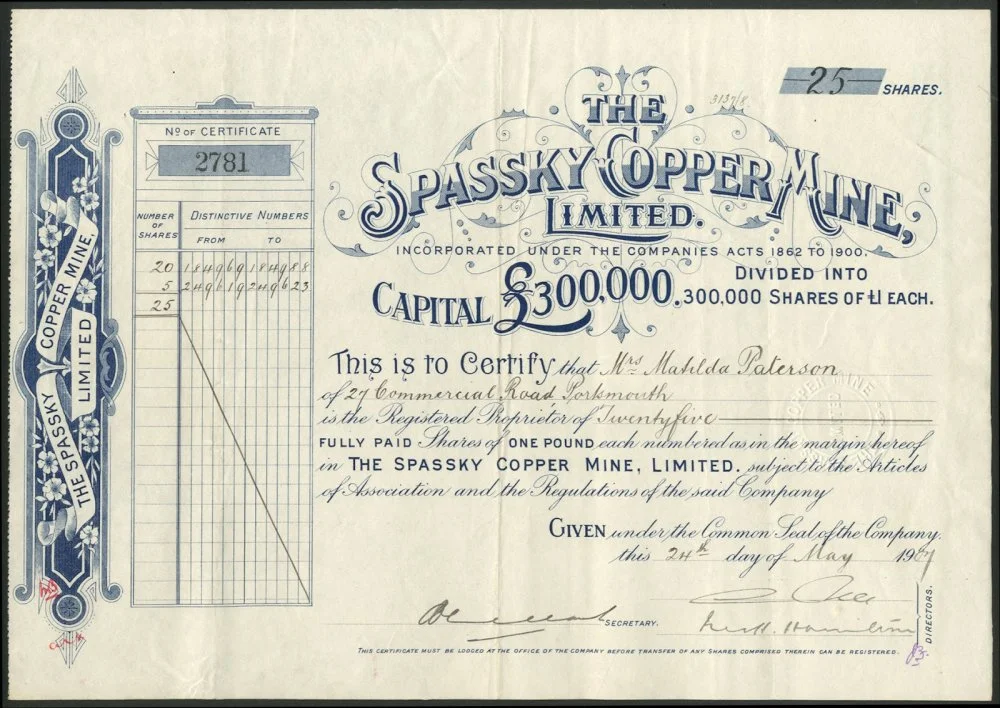 25 SHARES.
3137/8
THE
SPASSKY COPPER MINE,
LIMITED.
INCORPORATED UNDER THE COMPANIES ACTS 1862 TO 1900.
CAPITAL £300,000. DIVIDED INTO
300,000 SHARES OF £1 EACH.
No OF CERTIFICATE
2781
NUMBER OF SHARES
DISTINCTIVE NUMBERS
FROM TO
20 184969 184988
5 249619 249623
25
THE SPASSKY COPPER MINE,
LIMITED
This is to Certify that Mrs Matilda Paterson
of 27 Commercial Road Portsmouth
is the Registered Proprietor of Twentyfive
FULLY PAID Shares of ONE POUND each numbered as in the margin hereof
in THE SPASSKY COPPER MINE, LIMITED. subject to the Articles
of Association and the Regulations of the said Company
GIVEN under the Common Seal of the Company.
this 24th day of May 1907
SECRETARY.
DIRECTORS.
THIS CERTIFICATE MUST BE LODGED AT THE OFFICE OF THE COMPANY BEFORE TRANSFER OF ANY SHARES COMPRISED THEREIN CAN BE REGISTERED.
COPPER MINE